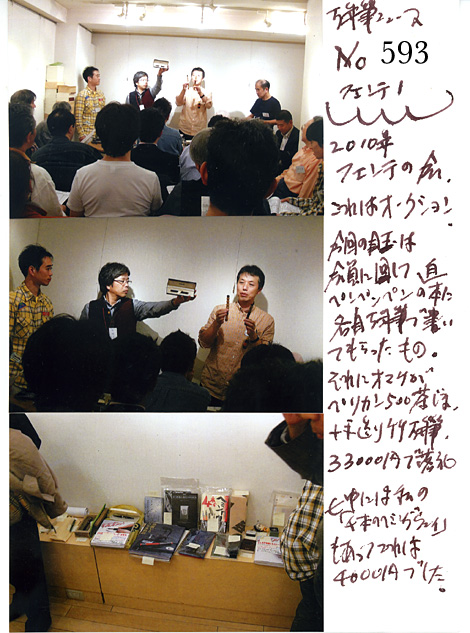 万年筆ニュース
No 593
フェンテ
2010年
フェンテの会、
これはオークション。
今回の目玉は
会員に回して、直
ペンペンペンの本に
各自万年筆で書い
てもらったもの。
それにオマケが
ペリカン500茶じま、
33000円で落札
中には私の
もあってこれは
4000円でした。